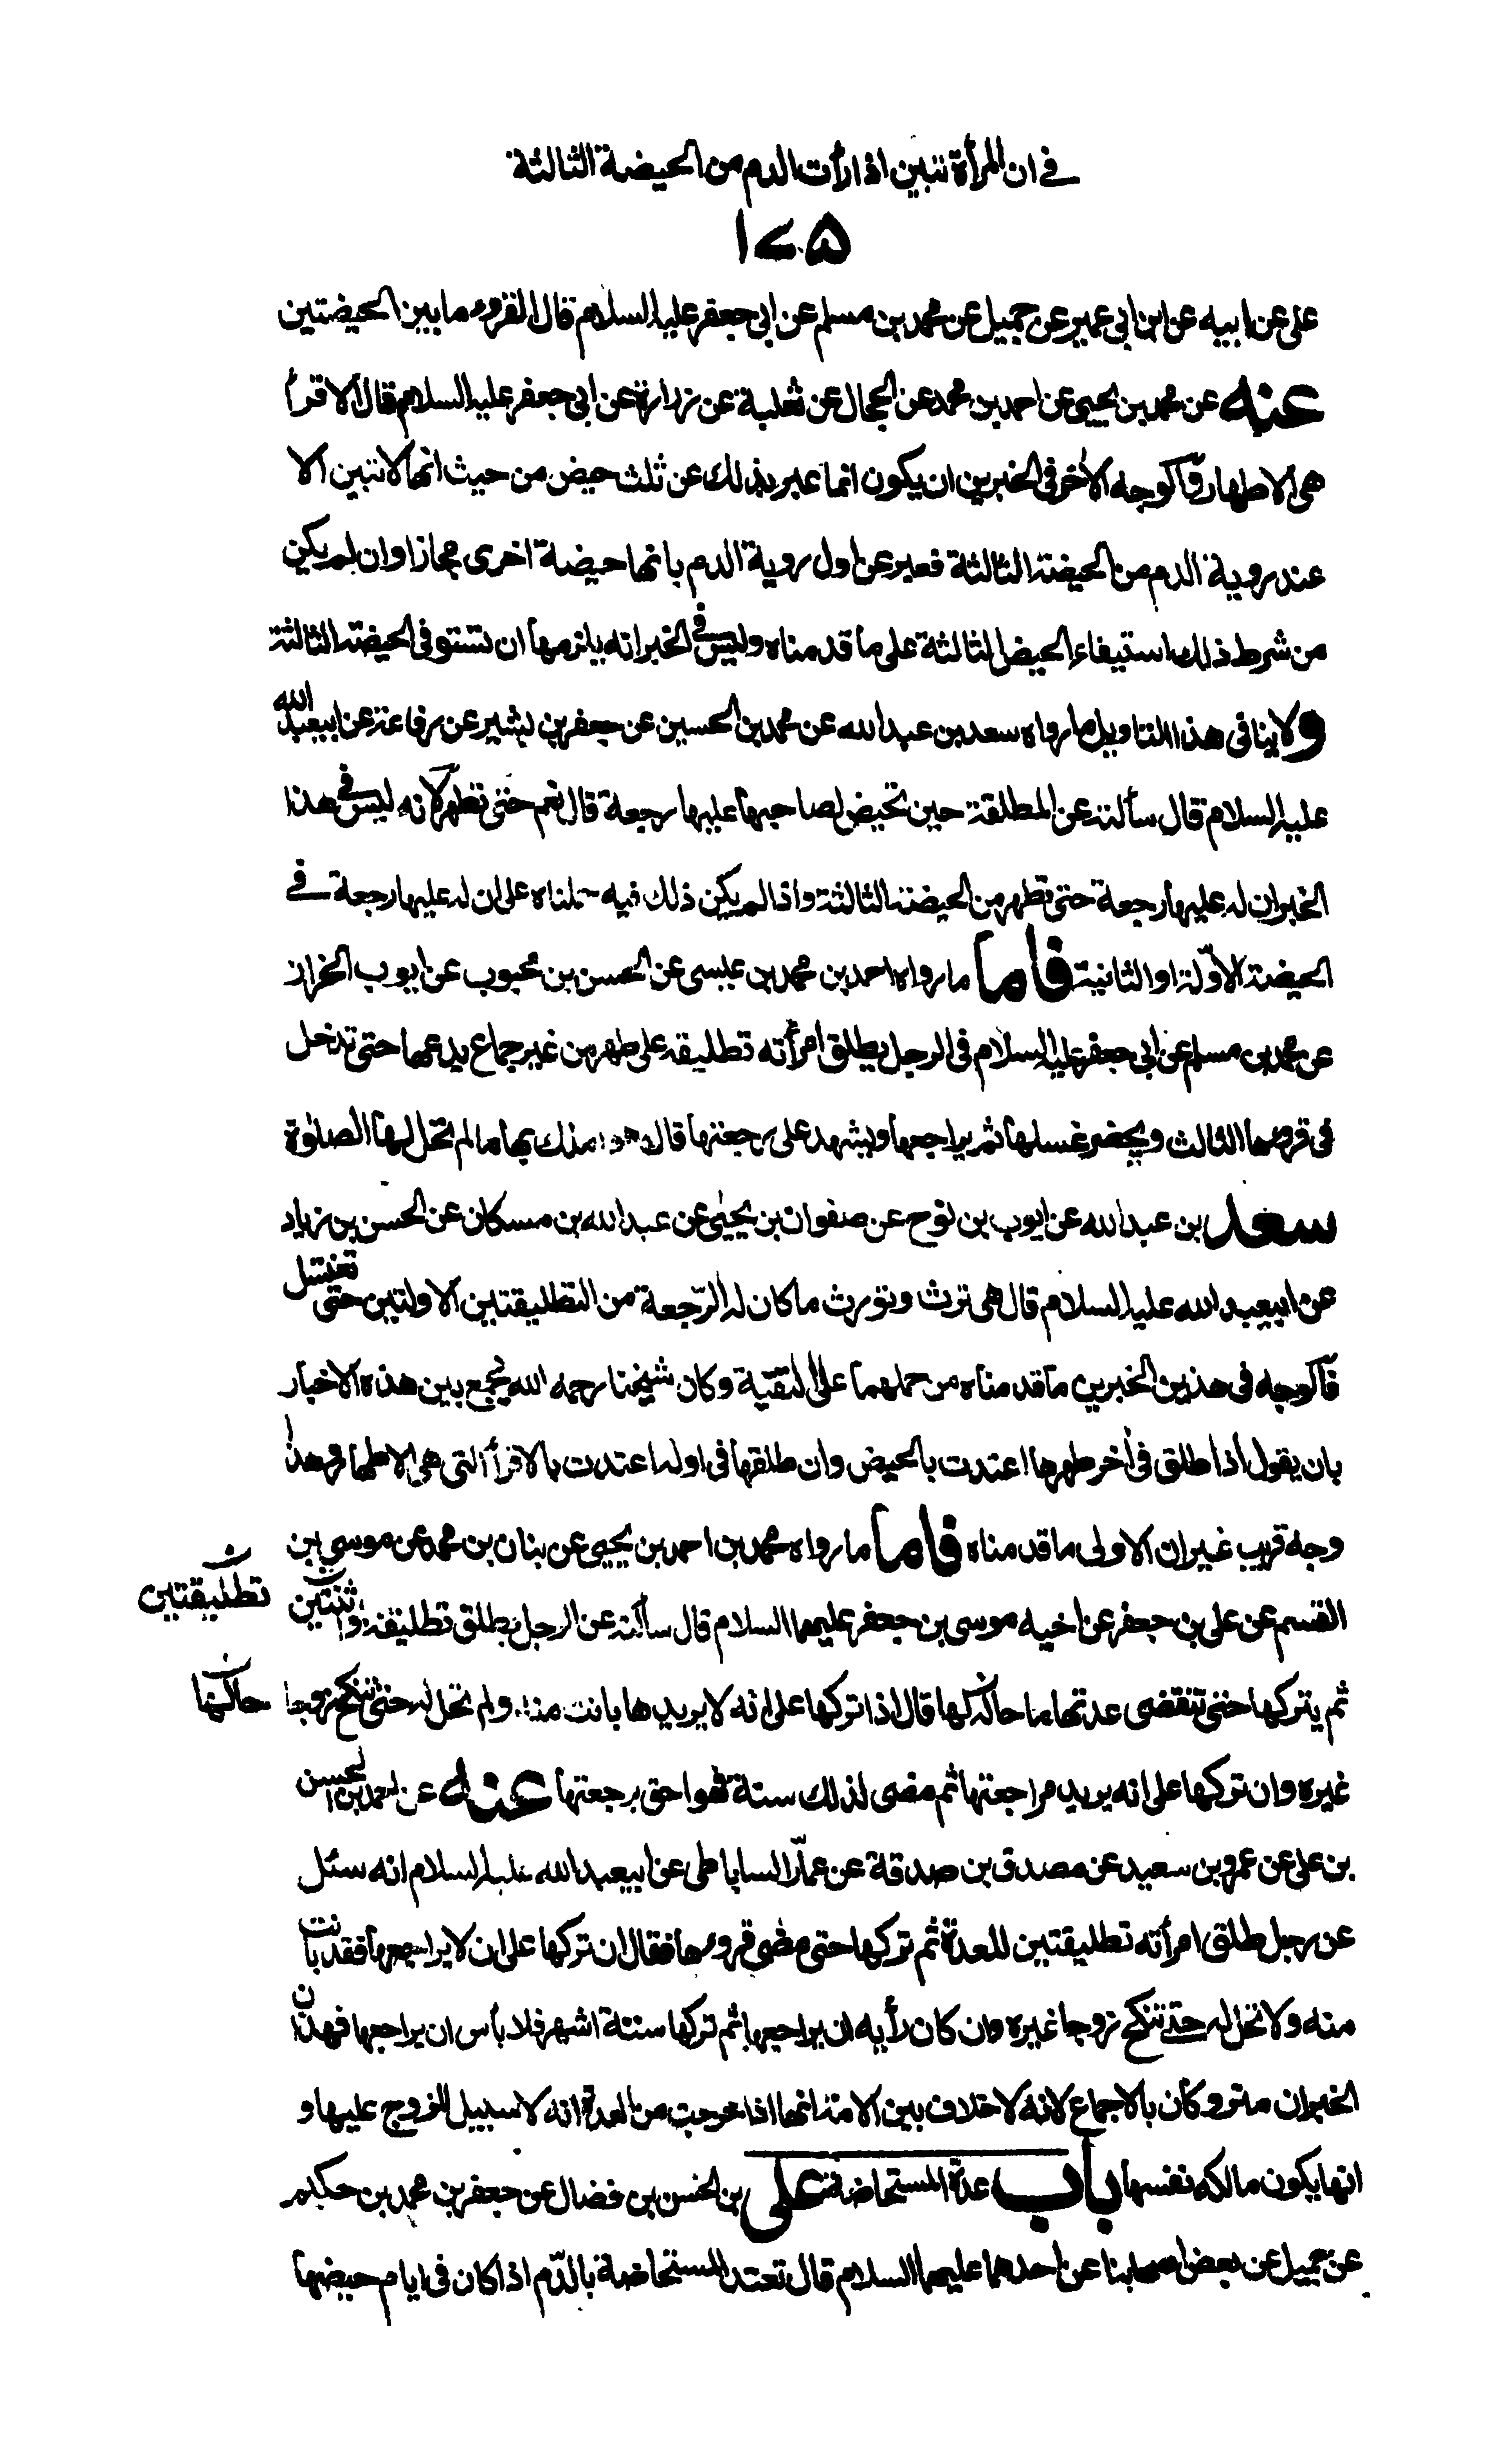 في ان المرأة تبين اذا رأت الدم من الحيضة الثالثة
١٧٥
على عن ابيه عن ابن ابى عمير عن جميل عن محمد بن مسلم عن ابى جعفر عليه السلام قال القروء ما بين الحيضتين
عنه عن محمد بن يحيى عن احمد بن محمد عن الحجال عن ثعلبة عن زرارة عن ابى جعفر عليه السلام قال الاقرأ
هى الاطهار فآلوجه الأخر فى الخبرين ان يكون انما عبر بذلك عن ثلث حيض من حيث انها لا تبين الا
عند روية الدم من الحيضة الثالثة فعبر عن اول روية الدم بانها حيضة اخرى مجازا وان لم يكن
من شرط ذلك استيفاء الحيض الثالثة على ما قدمناه وليس فى الخبر انه يلزمها ان تستوفى الحيضة الثالثة
ولا ينافى هذا التاويل ما رواه سعد بن عبد الله عن محمد بن الحسين عن جعفر بن بشير عن رفاعة عن ابيعبد الله
عليه السلام قال سألته عن المطلقة حين تحيض لصاحبها عليها رجعة قال نعم حتى تطهر لآنه ليس فى هذا
الخبر ان له عليها رجعة حتى تطهر من الحيضة الثالثة واذا لم يكن ذلك فيه حملناه على ان له عليها رجعة في
الحيضة الاوّلة او الثانية فاما ما رواه احمد بن محمد بن عيسى عن الحسن بن محبوب عن ايوب الخراز
عن محمد بن مسلم عن ابى جعفر عليه السلام فى الرجل يطلق امرأته تطليقة على طهر من غير جماع يدعها حتى تدخل
فى قرءها الثالث ويحضر غسلها ثم يراجعها ويشهد على رجعتها قال هو املك بها ما لم تحل لها الصلوة
سعد بن عبد الله عن ايوب بن نوح عن صفوان بن يحيى عن عبد الله بن مسكان عن الحسن بن زياد
عن ابيعبد الله عليه السلام قال هى ترث وتورث ما كان له الرّجعة من التطليقتين الاولتين حتى تغتسل
فآلوجه فى هذين الخبرين ما قدمناه من حملهما على التقية وكان شيخنا رحمه الله يجمع بين هذه الاخبار
بان يقول اذا طلق فى أخر طهرها اعتدت بالحيض وان طلقها فى اوله اعتدت بالاقرأ التى هى الاطهار وهذا
وجه قريب غير ان الاولى ما قدمناه فاما ما رواه محمد بن احمد بن يحيى عن بنان بن محمد عن موسى بن
القسم عن على بن جعفر عن اخيه موسى بن جعفر عليهما السلام قال سألته عن الرجل يطلق تطليقة او اثنتين
تطليقتين
ثم يتركها حتى تنقضى عدتها ما حالها قال اذا تركها على انه لا يريدها بانت منه ولم تحل له حتى تنكح زوجا
حالها
غيره وان تركها على انه يريد مراجعتها ثم مضى لذلك سنة فهو احق برجعتها عنه عن احمد بن الحسن
بن على عن عمرو بن سعيد عن مصدق بن صدقة عن عمار الساباطى عن ابيعبد الله عليه السلام انه سئل
عن رجل طلق امرأته تطليقتين للعدة ثم تركها حتى مضى قروءها فقال ان تركها على ان لا يراجعها فقد بانت
منه ولا تحل له حتى تنكح زوجا غيره وان كان رأيه ان يراجعها ثم تركها ستة اشهر فلا بأس ان يراجعها فهذان
الخبران متروكان بالاجماع لانه لا خلاف بين الامة انها اذا خرجت من العدة انه لا سبيل للزوج عليها و
انها يكون مالكه نفسها باب عدة المستحاضة على بن الحسن بن فضال عن جعفر بن محمد بن حكيم
عن جميل عن بعض اصحابنا عن احدهما عليهما السلام قال تعتد المستحاضة بالدّم اذا كان فى ايام حيضها